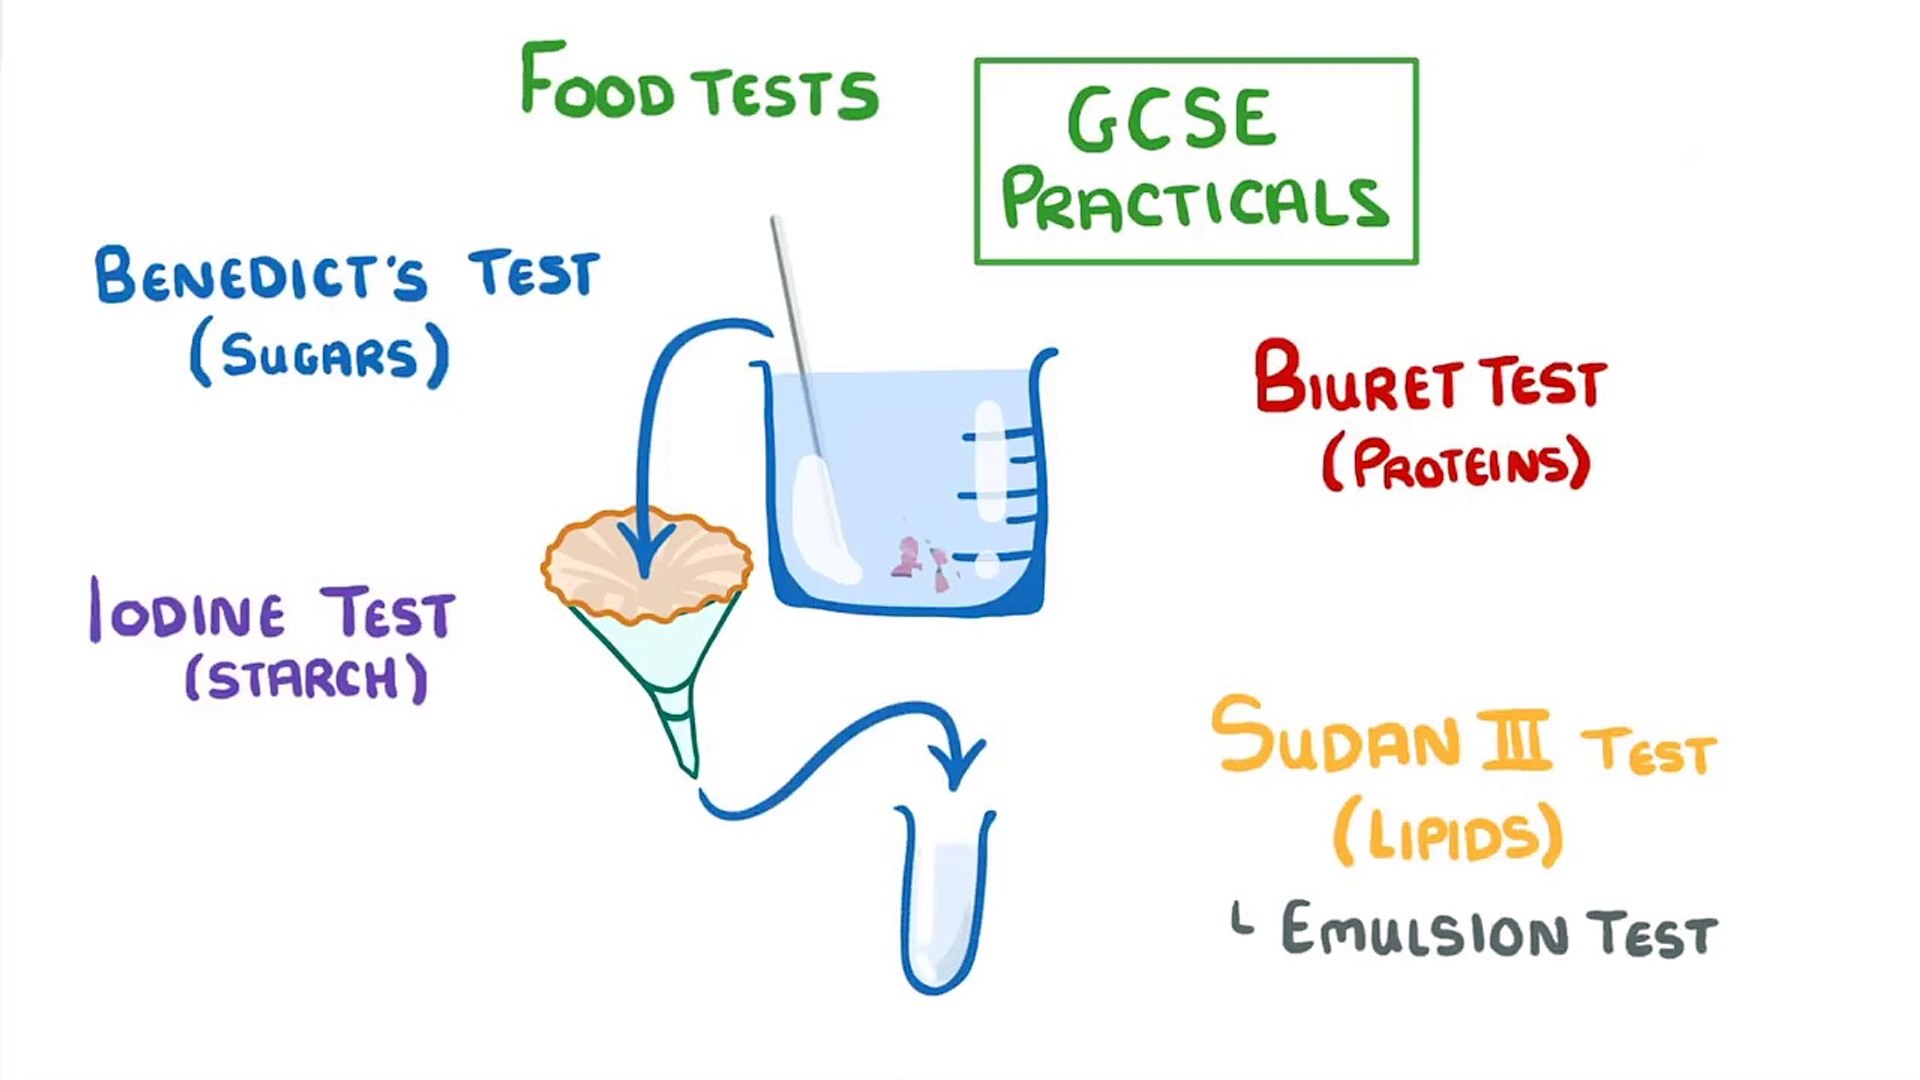 FOOD TESTS
GCSE
PRACTICALS
BENEDICT'S TEST
(SUGARS)
BIURET TEST
(PROTEINS)
IODINE TEST
(STARCH)
SUDAN III TEST
(LIPIDS)
EMULSION TEST